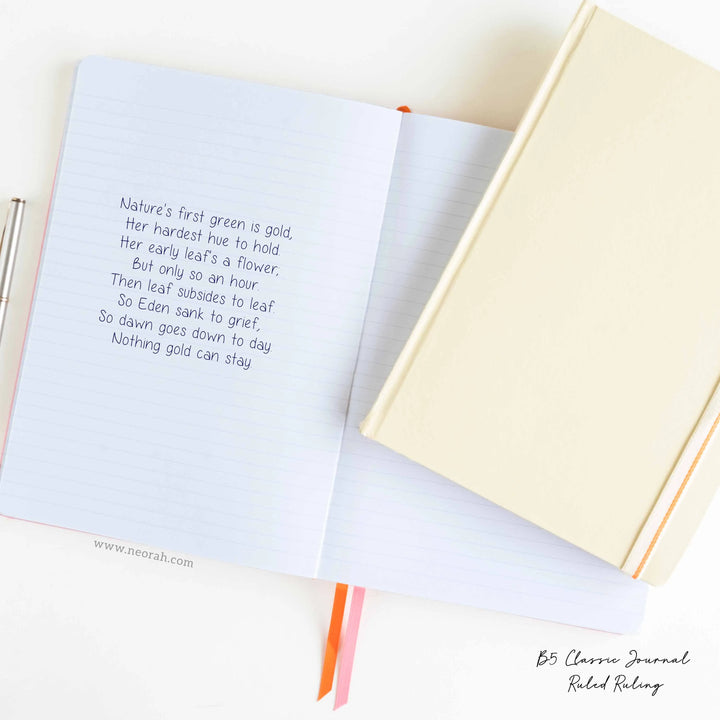 Nature's first green is gold,
Her hardest hue to hold.
Her early leaf's a flower;
But only so an hour.
Then leaf subsides to leaf.
So Eden sank to grief,
So dawn goes down to day.
Nothing gold can stay
www.neorah.com
B5 Classic Journal
Ruled Ruling